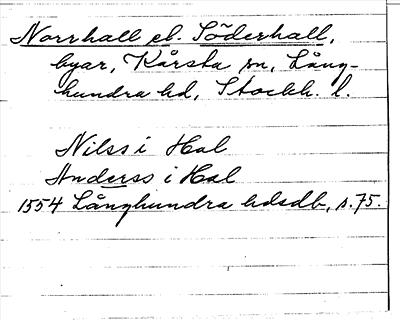 Norrhall el. Söderhall,
byar, Kårsta sn, Lång-
hundra hd, Stockh. l.
Nilss i Hal
Anderss i Hal
1554 Långhundra hdsdb, s. 75.